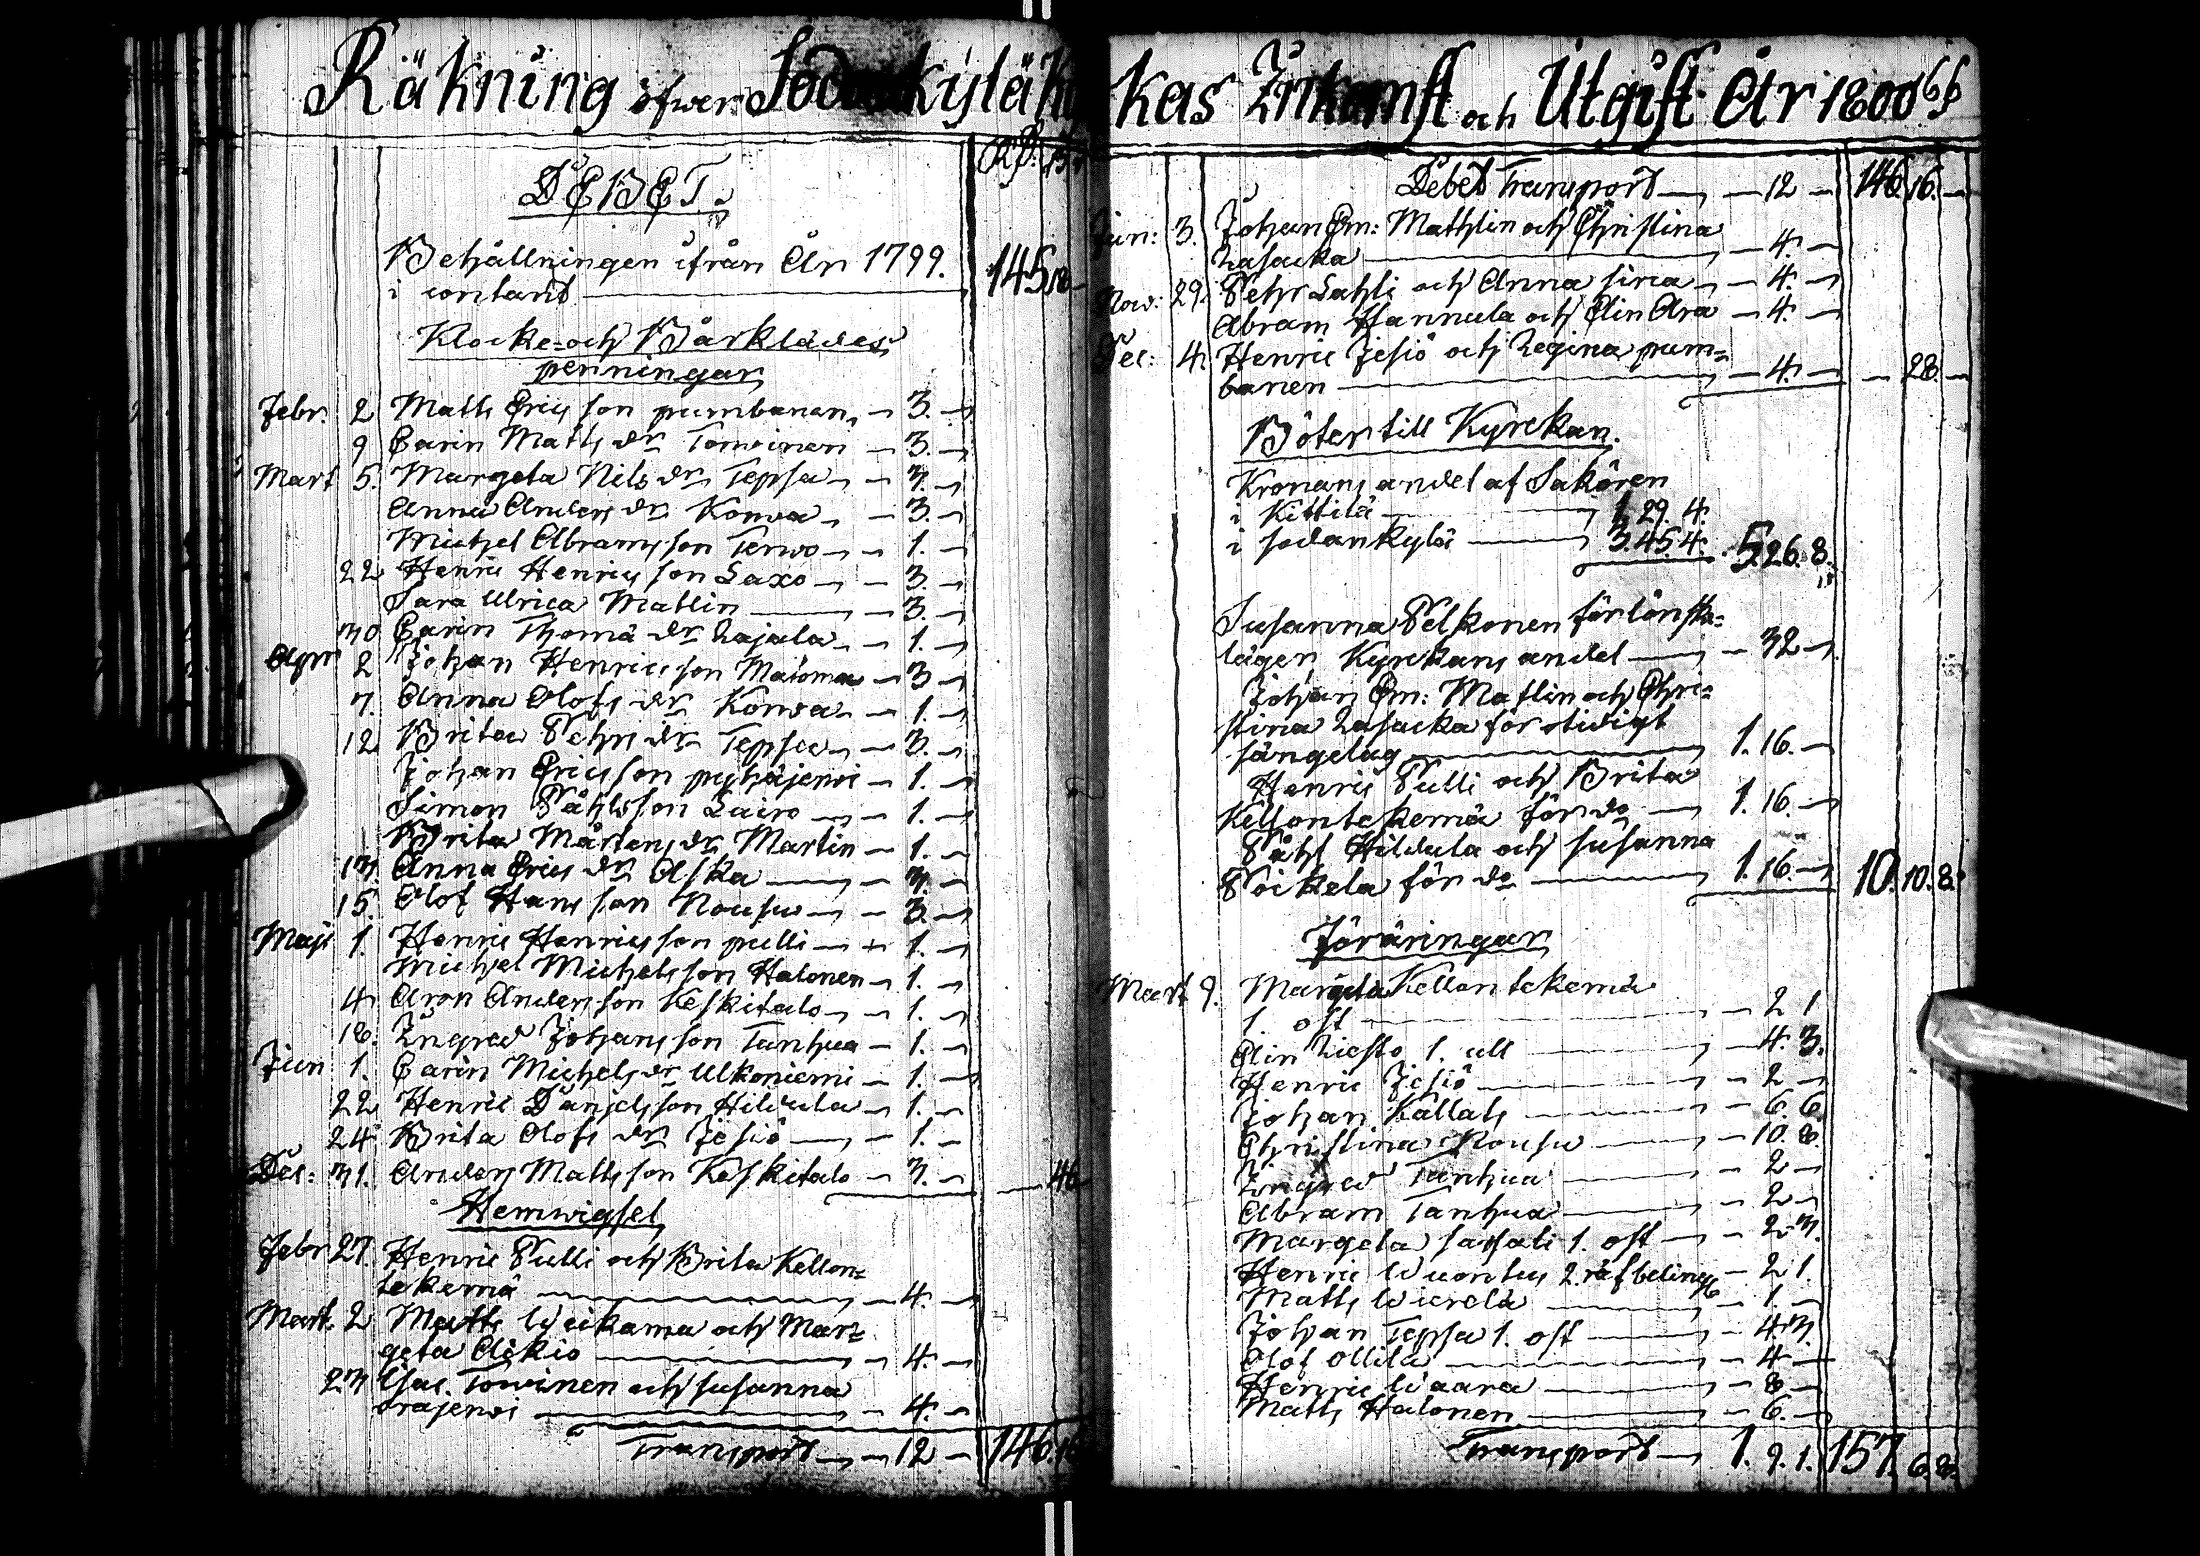 Räkning öfwer Sodankylä Kyr
DEBET.
Rd: ß
Behållningen ifrån År 1799.
i contant — 145.18
Klocke- och Bårklädes
penningar
Febr. 2 Matts Ericsson pumbanen — 3. —
9 Carin Matts dr Toiwoinen — 3. —
Mart 5. Margeta Nils dr Tepsa — 3. —
Anna Anders dr Konsa — 3. —
Michel Abramsson Terwo — 1. —
22 Henric Henricsson Saxo — 3. —
Sara Ulrica Matlin — 3. —
30 Carin Thomä dr Rajala — 1. —
Apr 2 Johan Henricsson Mäloma — 3 —
7. Anna Olofs dr Konsa — 1. —
12 Brita Pehrs dr Tepsa — 3. —
Johan Ericsson pyhäjerwi — 1. —
Simon Påhlsson Sairo — 1. —
Brita Mårtens dr Martin — 1. —
13 Anna Erics dr Aska — 3. —
15. Olof Hansson Rousu — 3. —
Maji 1. Henric Henricsson pulli — 1. —
Michel Michelsson Halonen — 1. —
4 Aron Andersson Keskitalo — 1. —
18. Ingred Johansson Tanhua — 1. —
Jun 1. Carin Michels dr Ulkoniemi — 1. —
22 Henric Danjelsson Hildula — 1. —
24 Brita Olofs dr Jesiö — 1. —
Dec: 31. Anders Mattsson Keskitalo — 3. — — 46
Hemwigsel
Febr 27. Henric Pulli och Brita Kellon=
tekemä — 4. —
Mart. 2 Matts Weikama och Mar=
geta Aikio — 4. —
23 Isac Toiwinen och Susanna
orajerwi — 4. —
Transport — 12 — 146.16
kas Inkomst och Utgift År 1800 66
Debet Transport — 12 — 146 16. —
Jun: 3. Johan Em: Mathlin och Christina
Rasacka — 4. —
Nov: 29. Pehr Sahli och Anna sirca — 4. —
Abram Hannula och Elin Ara — 4. —
Dec: 4. Henric Jesiö och Regina pum=
banen — 4. — — 28. —
Böter till Kyrckan.
Kronans andel af Sakören
i Kittilä — 1. 29. 4.
i sodankylä — 3. 45. 4. 5. 26. 8.
Susanna Pelkonen för lönska=
läger Kyrckans andel — 32 —
Johan Em: Matlin och Chri=
stina Rasacka för otidigt
sängelag — 1. 16. —
Henric Pulli och Brita
Kellontekemä för do — 1. 16. —
Påhl Hildula och susanna
Poikela för do — 1. 16. — 10. 10. 8.
Föräringar
Mart 9. Margeta Kellontekemä
1. ost — 2 1
Elin Liesto 1. ull — 4. 3.
Henric Jesiö — 2 —
Johan Kallats — 6. 6
Christina Rousu — 10. 8.
Ingred Tanhua — 2 —
Abram Tanhua — 2 —
Margeta sassali 1. ost — 2. 3.
Henric Wuontus 2 räfbelingr — 2 1.
Matts Wuerela — 1. —
Johan Tepsa 1. ost — 4. 3.
Olof Ollila — 4 —
Henric Waara — 8 —
Matts Halonen — 6. —
Transport — 1. 9. 1. 157. 6. 8.